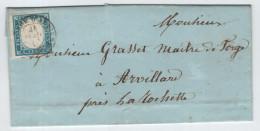 Monsieur
Monsieur Grasset Maitre de Forge
à Arvillard
près La Rochette